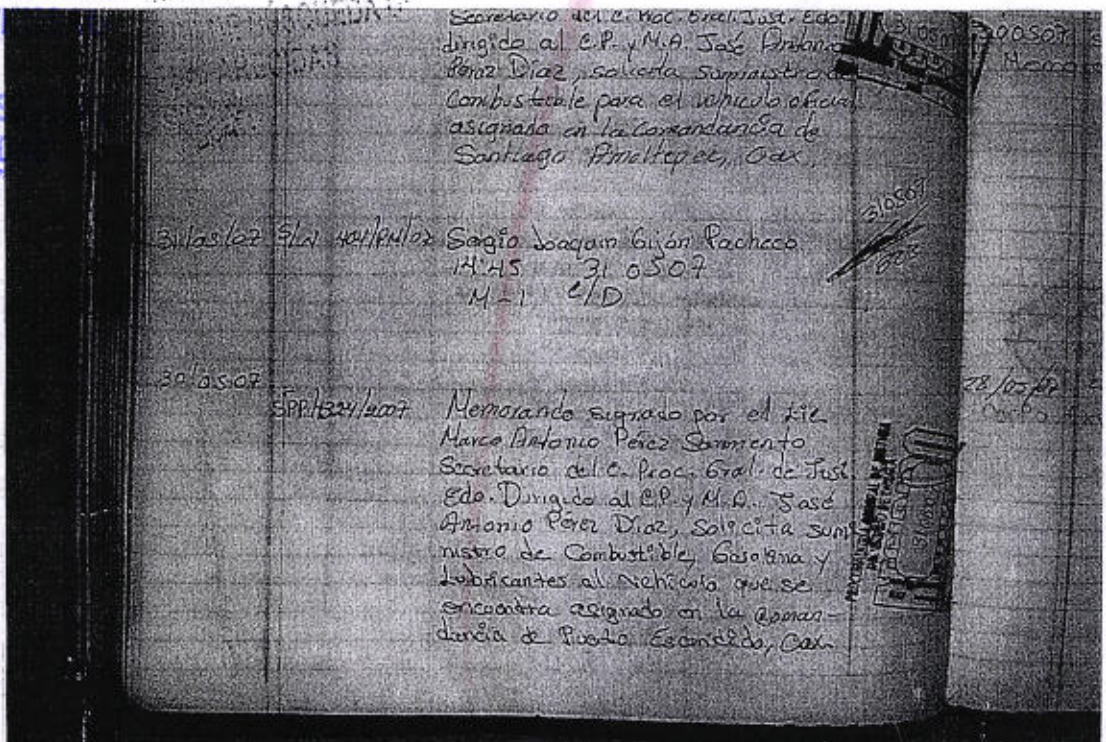 Secretario del C. Proc. Gral. Just. Edo.
dirigido al C.P. y M.A. José Antonio
Pérez Díaz, solicita suministro de
Combustible para el vehiculo oficial
asignado en la Comandancia de
Santiago Amoltepec, Oax.
310507
31/05/07 S/N 404/PM/07 Sergio Joaquin Gijón Pacheco
14:45 31 0507
M-1 C/D
30/05.07
SPP/1324/2007 Memorando signado por el Lic
Marco Antonio Pérez Sarmiento
Secretario del C. Proc. Gral. de Just
Edo. Dirigido al C.P. y M.A. José
Antonio Pérez Diaz, Solicita sumi
nistro de Combustible, Gasolina y
Lubricantes al Vehículo que se
encuentra asignado en la Coman-
dancia de Puerto Escondido, Oax.
300507
Memo
28/05/07